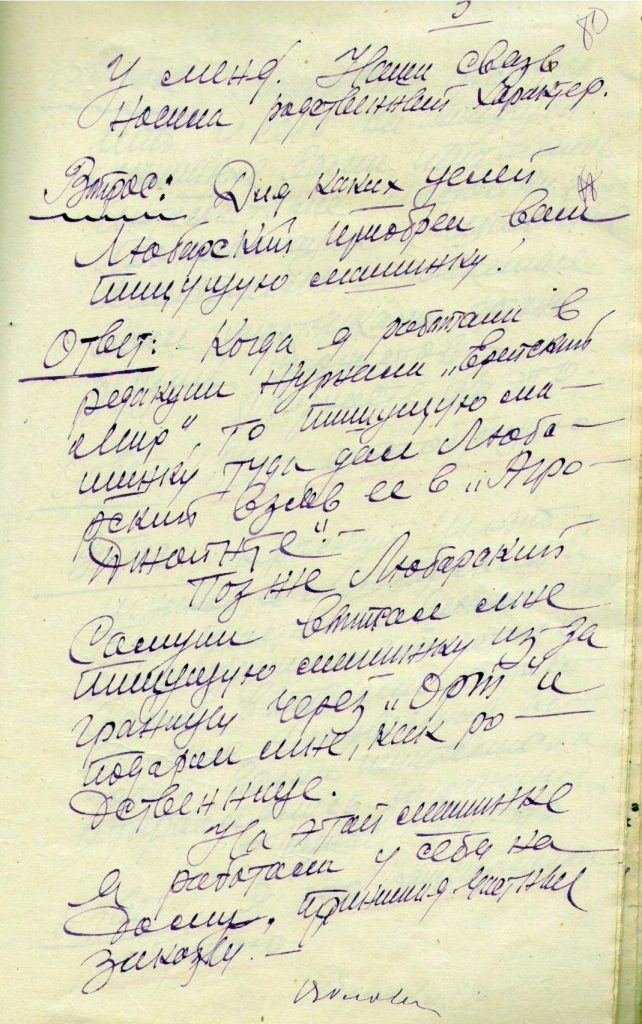 80
у меня. Наши связи
носили родственный характер.
Вопрос: Для каких целей
Любарский приобрел вам
пишущую машинку?
Ответ: Когда я работала в
редакции журнала „Еврейский
Мир", то пишущую ма-
шинку туда дал Люба-
рский взяв ее в „Агро-
Джойнте".—
Позже Любарский
Самуил выписал мне
пишущую машинку из за
границы через „Орт" и
подарил мне, как ро-
дственнице.
На этой машинке
я работала у себя на
дому, принимая частные
заказы.—